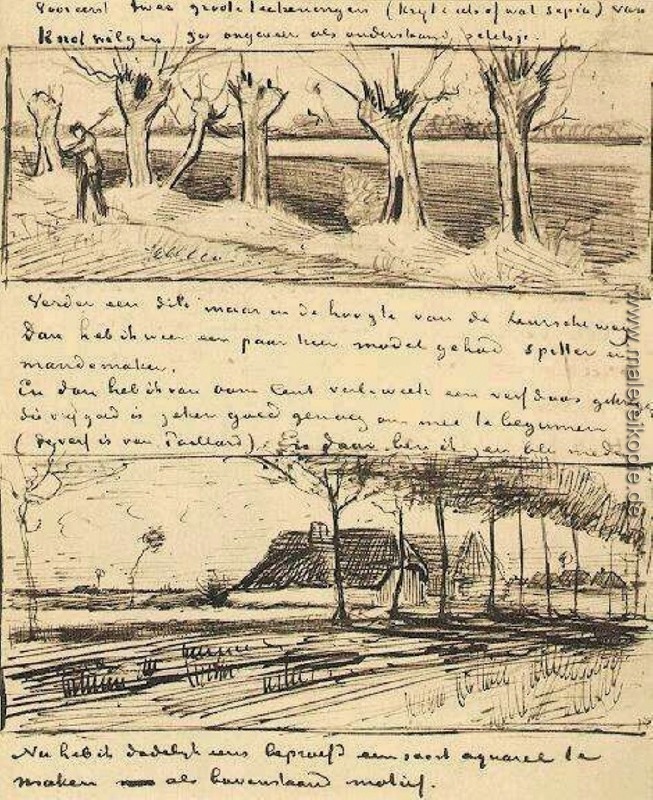 Vooreerst twee groote teekeningen (krijt & iets of wat sepia) van
Knotwilgen zoo ongeveer als onderstaand schetsje.
Verder een dito maar in de hoogte van de Leursche weg
Dan heb ik weer een paar keer model gehad spitter en
mandemaker.
En dan heb ik van oom Cent verl. week een verfdoos gekregen
die vrij goed is zeker goed genoeg om mee te beginnen
(de verf is van Paillard). En daar ben ik zeer blij mede
Nu heb ik dadelijk eens beproefd een soort aquarel te
maken als bovenstaand motief.
www.malereikopie.de